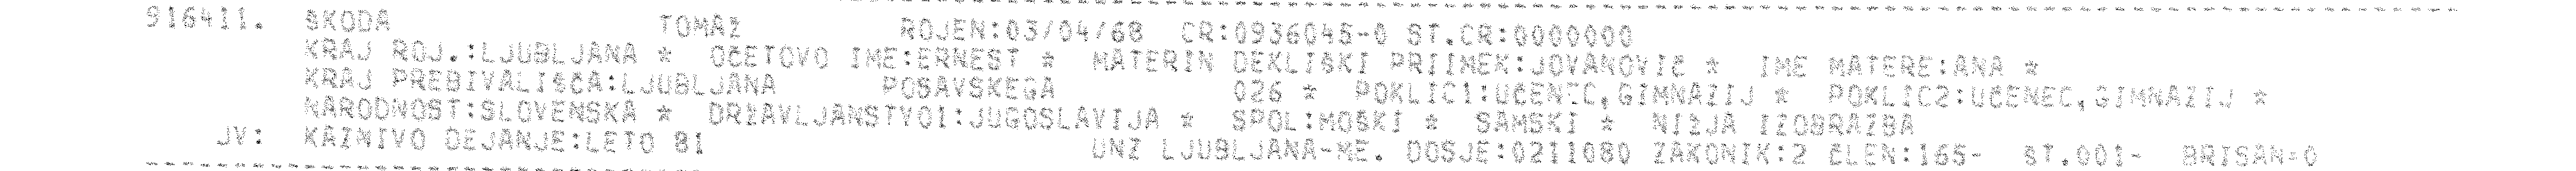 916411. ŠKODA TOMAŽ ROJEN:03/04/68 CR:0936045-0 ST.CR:0000000
KRAJ ROJ.:LJUBLJANA * OČETOVO IME:ERNEST * MATERIN DEKLIŠKI PRIIMEK:JOVANOVIČ * IME MATERE:ANA *
KRAJ PREBIVALIŠČA:LJUBLJANA POSAVSKEGA 026 * POKLIC1:UČENEC,GIMNAZIJ * POKLIC2:UČENEC,GIMNAZIJ *
NARODNOST:SLOVENSKA * DRŽAVLJANSTVO1:JUGOSLAVIJA * SPOL:MOŠKI * SAMSKI * NIŽJA IZOBRAZBA
JV: KAZNIVO DEJANJE:LETO 81 UNZ LJUBLJANA-ME. DOSJE:0211080 ZAKONIK:2 ČLEN:165- ST.001- BRISAN=0